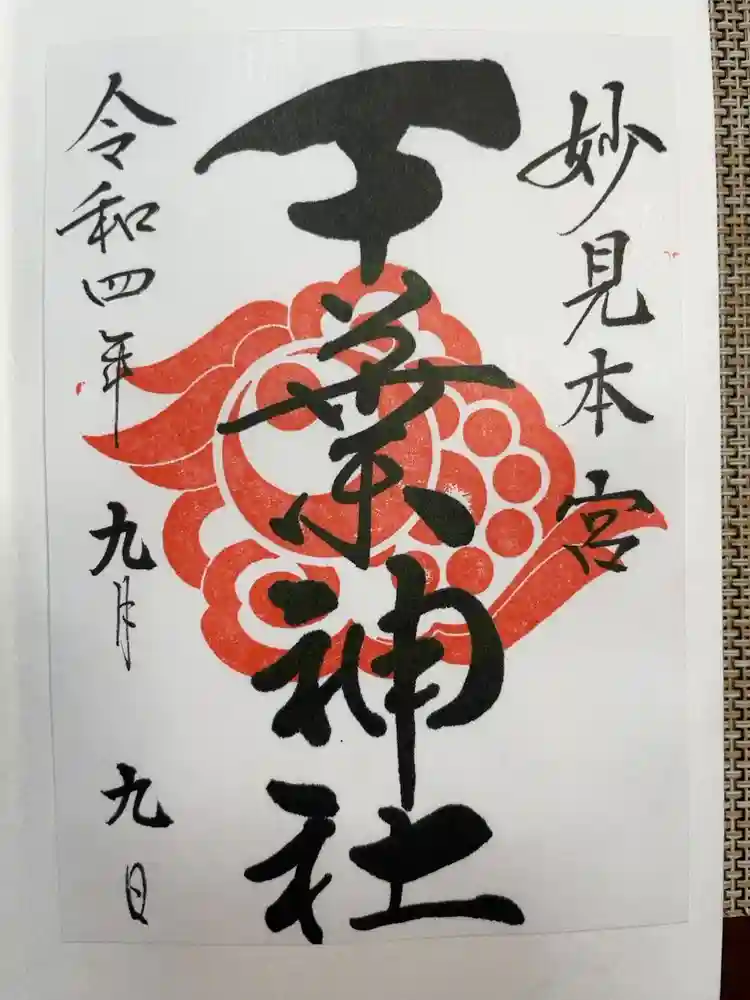 妙見本宮
千葉神社
令和四年九月九日